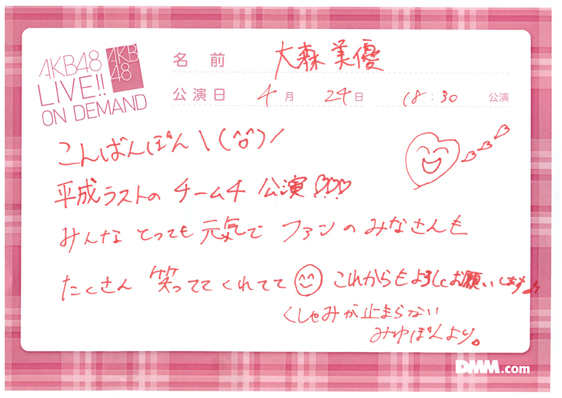 AKB48
LIVE!!
ON DEMAND
AKB
48
名前 大森美優
公演日 4月 24日 18:30 公演
こんばんぽん\(^o^)/
平成ラストの チーム4 公演♡♡♡
みんな とっても 元気で ファンの みなさんも
たくさん 笑ってて くれてて これからもよろしくお願いします♪
くしゃみが止まらない
みゆぽんより。
DMM.com